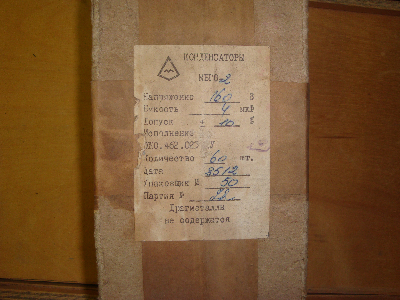 КОНДЕНСАТОРЫ
МБГО-2
Напряжение 160 В
Емкость 4 мкФ
Допуск ± 10 %
Исполнение
Количество 60 шт.
Дата 8512
Упаковщик № 50
Партия №
Драгметаллы
не содержатся